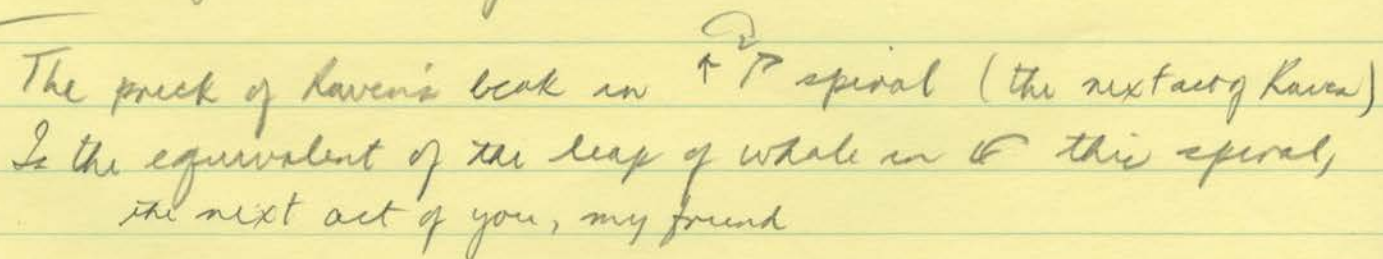 The prick of Raven's beak in ↑ ↗ spiral (the next act of Raven)
Is the equivalent of the leap of whale in this spiral,
the next act of you, my friend